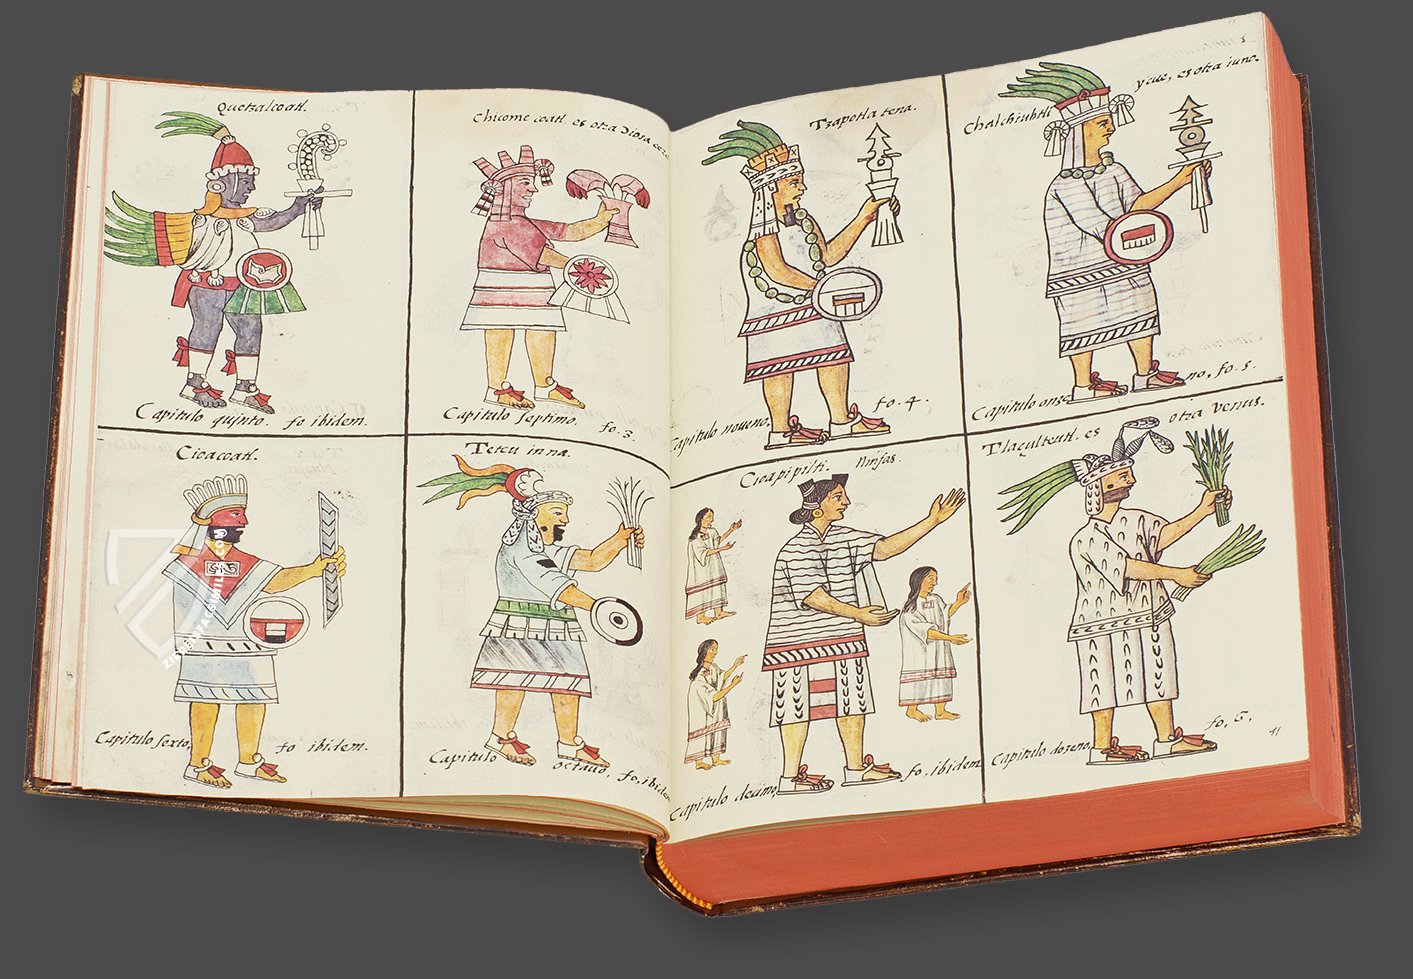 Quetzalcoatl.
Capitulo quinto. fo ibidem.
Chicome coatl. es otra Diosa
Capitulo septimo. fo. 3.
Cioacoatl.
Capitulo sexto, fo ibidem.
Teteu innã.
Capitulo octauo, fo, ibidem
Tzapotla tena.
Capitulo noueno, fo. 4.
Chalchiuhtli
ycue, es otra iuno.
Capitulo onze
no, fo. 5.
Cioapipilti. Ninfas.
Capitulo decimo, fo, ibidem
Tlaçulteutl. es otra venus.
Capitulo dozeno, fo, 6,
11
ZIEREIS FACSIMILES.COM